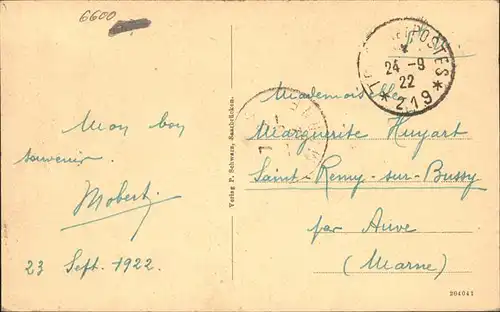 6600
Mon bon
souvenir.
Mobert.
23 Sept. 1922.
Verlag P. Schwarz, Saarbrücken.
POSTES
24 - 9
22
* 219 *
Mademoiselle
Marguerite Huyart
Saint-Remy-sur-Bussy
par Auve
(Marne)
264041